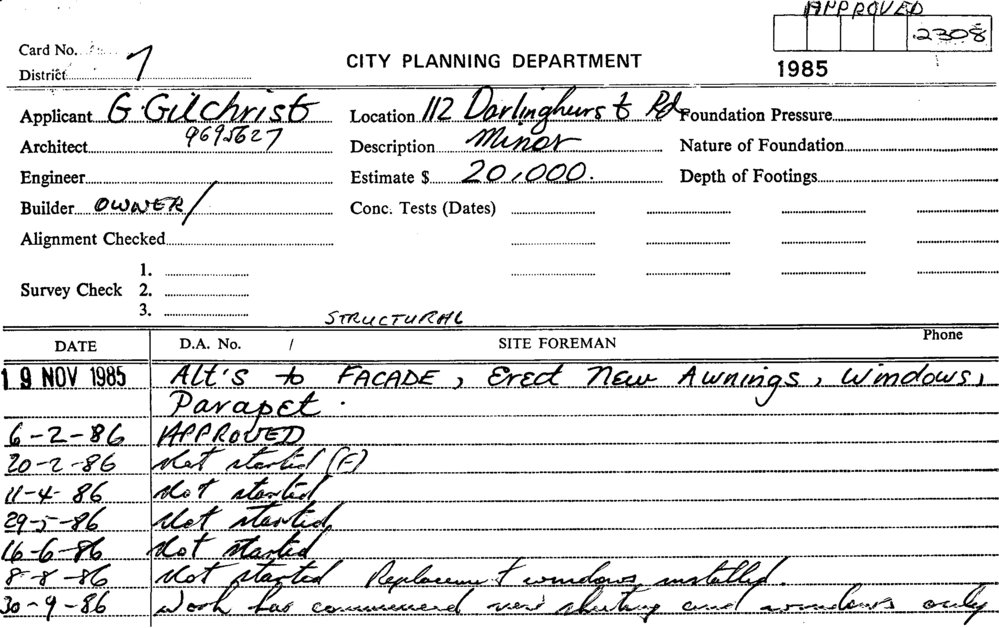 APPROVED
2308
Card No.
District 7
CITY PLANNING DEPARTMENT
1985
Applicant G. Gilchrist
Location 112 Darlinghurst Rd
Foundation Pressure
9695627
Architect
Description Minor
Nature of Foundation
Engineer
Estimate $ 20,000.
Depth of Footings
Builder OWNER/
Conc. Tests (Dates)
Alignment Checked
1.
Survey Check 2.
3.
STRUCTURAL
DATE D.A. No. / SITE FOREMAN Phone
19 NOV 1985 Alt's to FACADE, Erect New Awnings, Windows,
Parapet.
6-2-86 APPROVED
20-2-86 Not started (F)
11-4-86 Not started
29-5-86 Not started
16-6-86 Not started
8-8-86 Not started Replacement windows installed.
30-9-86 Work has commenced new and windows only